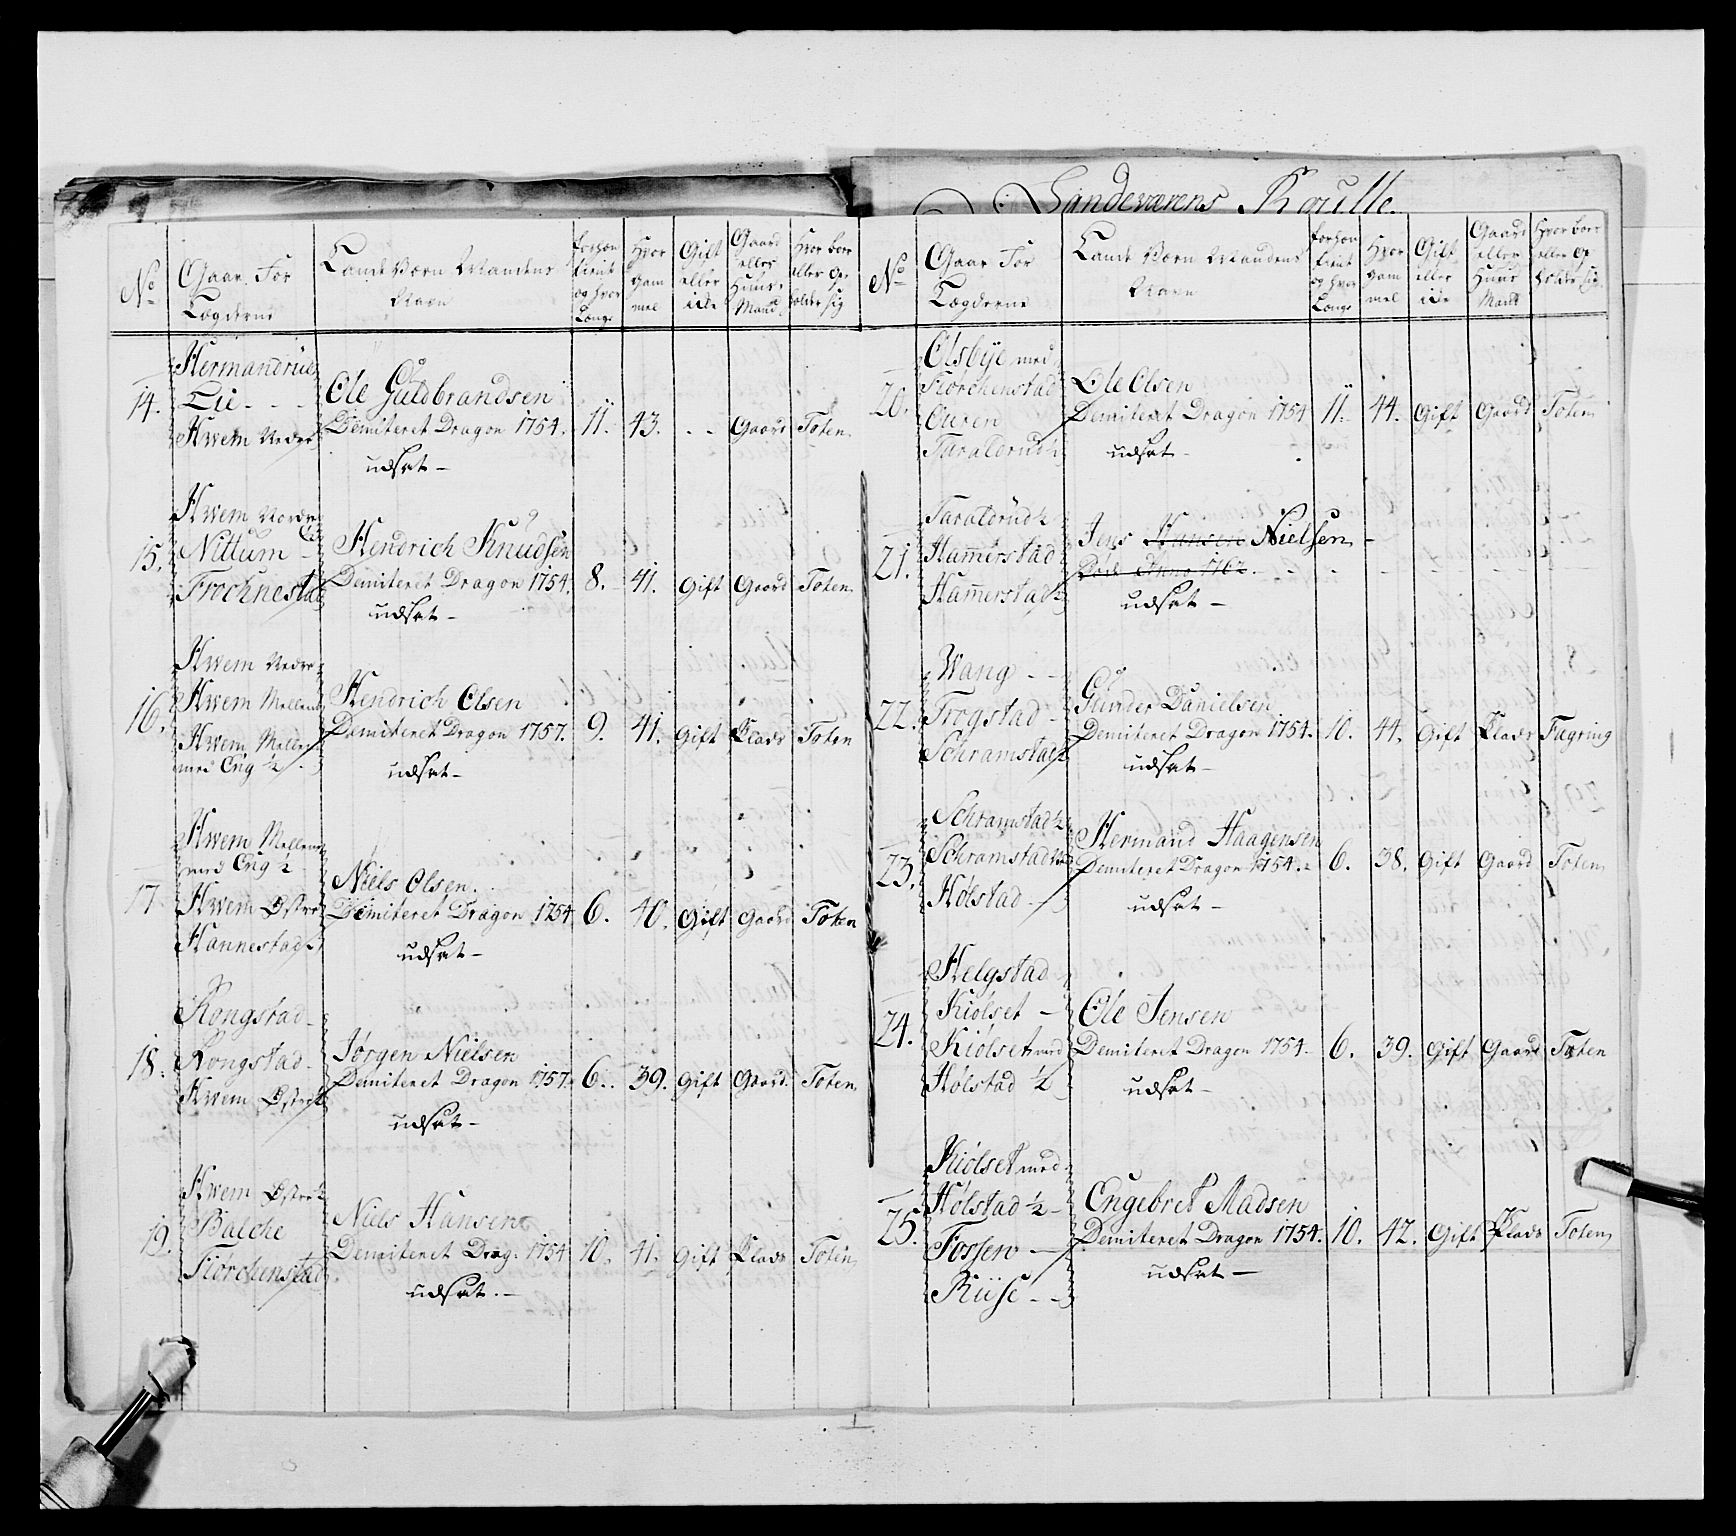 Landeværens Roulle.
No
Gaar For
Lægderne
Lande Værn Mandens
Navn
forhen
tient
og hvor
Længe
Hvor
gam
mel
Gift
eller
icke
Gaard
eller
Huus-
Mand.
Hvor boer
eller op
holder sig
14.
Hermandrüe
Lie - - -
Hwem Neder
Ole Guldbrandsen
Demiteret Dragon 1754. 11. 43. - - Gaard Toten
udsat -
15.
Hwem Nordre
Nittum -
Frochnestad
Hendrich Knudsen
Demiteret Dragon 1754. 8. 41. Gift Gaard Toten
udsat -
16.
Hwem Nedre
Hwem Mellem
Hwem Mellem
med Eng ½
Hendrich Olsen
Demiteret Dragon 1757. 9. 41. Gift Plads Toten
udsat -
17
Hwem Mellem
med Eng ½
Hwem Østre
Hannestad ½
Niels Olsen.
Demiteret Dragon 1754 6. 40. Gift Gaard Toten
udsat -
18.
Rongstad -
Rongstad -
Hwem Østre ½
Jørgen Nielsen
Demiteret Dragon 1757. 6. 39. Gift Gaard. Toten
udsat -
19.
Hwem Østre ½
Balche
Storchenstad
Niels Hansen
Demiteret Drag. 1754 10. 41. Gift Plads Toten
udsat. -
No
Gaar For
Lægderne
Lande Værn Mandens
Navn
forhen
tient
og hvor
Længe
Hvor
gam
mel
Gift
eller
icke
Gaard
eller
Huus
Mand
Hvor boer
eller op
holder sig
20.
Olsbye med
Storchenstad
Ouren
Taraldrud ½
Ole Olsen
Demiteret Dragon 1754 11. 44. Gift Gaard Toten
udsat -
21.
Taraldrud ½
Hammerstad
Hammerstad ½
Jens Hansen Nielsen -
Født Anno 1762.
udsat -
22.
Wang - -
Frogstad -
Schramstad ½
Gunder Danielsen
Demiteret Dragon 1754. 10. 44. Gift Plads Fugring
udsat -
23.
Schramstad ½
Schramstad
Hølstad -
Hermand Haagensen
Demiteret Dragon 1754. 6. 38. Gift Gaard Toten
udsat -
24.
Helgstad
Kiølset -
Kiølset med
Hølstad ½
Ole Jensen
Demiteret Dragon 1754. 6. 39. Gift Gaard Toten
udsat -
25.
Kiølset med
Hølstad ½
Fossen -
Riise - -
Engebret Madsen
Demiteret Dragon 1754. 10. 42. Gift Plads Toten
udsat -